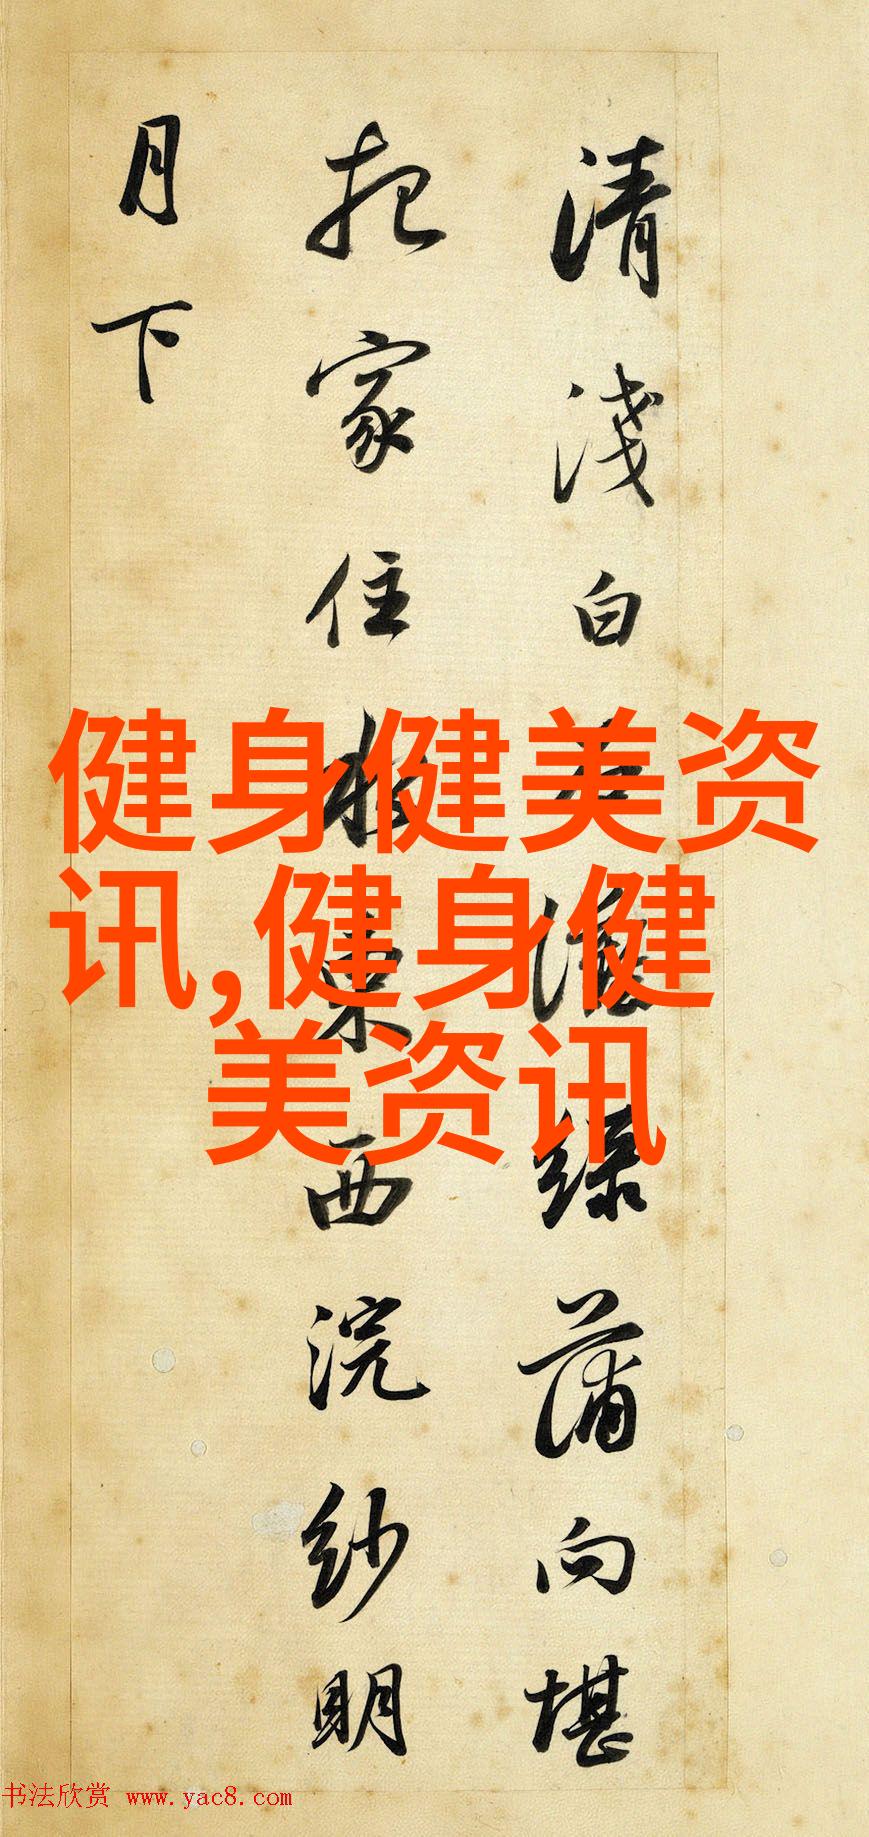 清淺白灘綠蒲向堪
把家住東西浣紗明
月下
健身健美资
讯,健身健
美资讯
书法欣赏 www.yac8.com